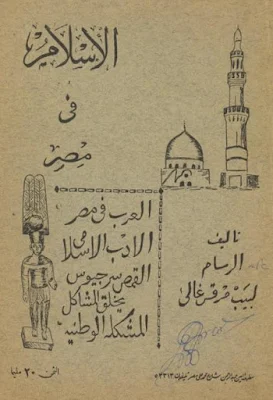 الإسلام
فى
مصر
العرب فى مصر
الأدب الإسلامى
القمص سرجيوس
يخلق المشاكل
المشكلة الوطنية
تأليف
الرسام
لبيب مرقس غالى
الثمن ٢٠ مليما